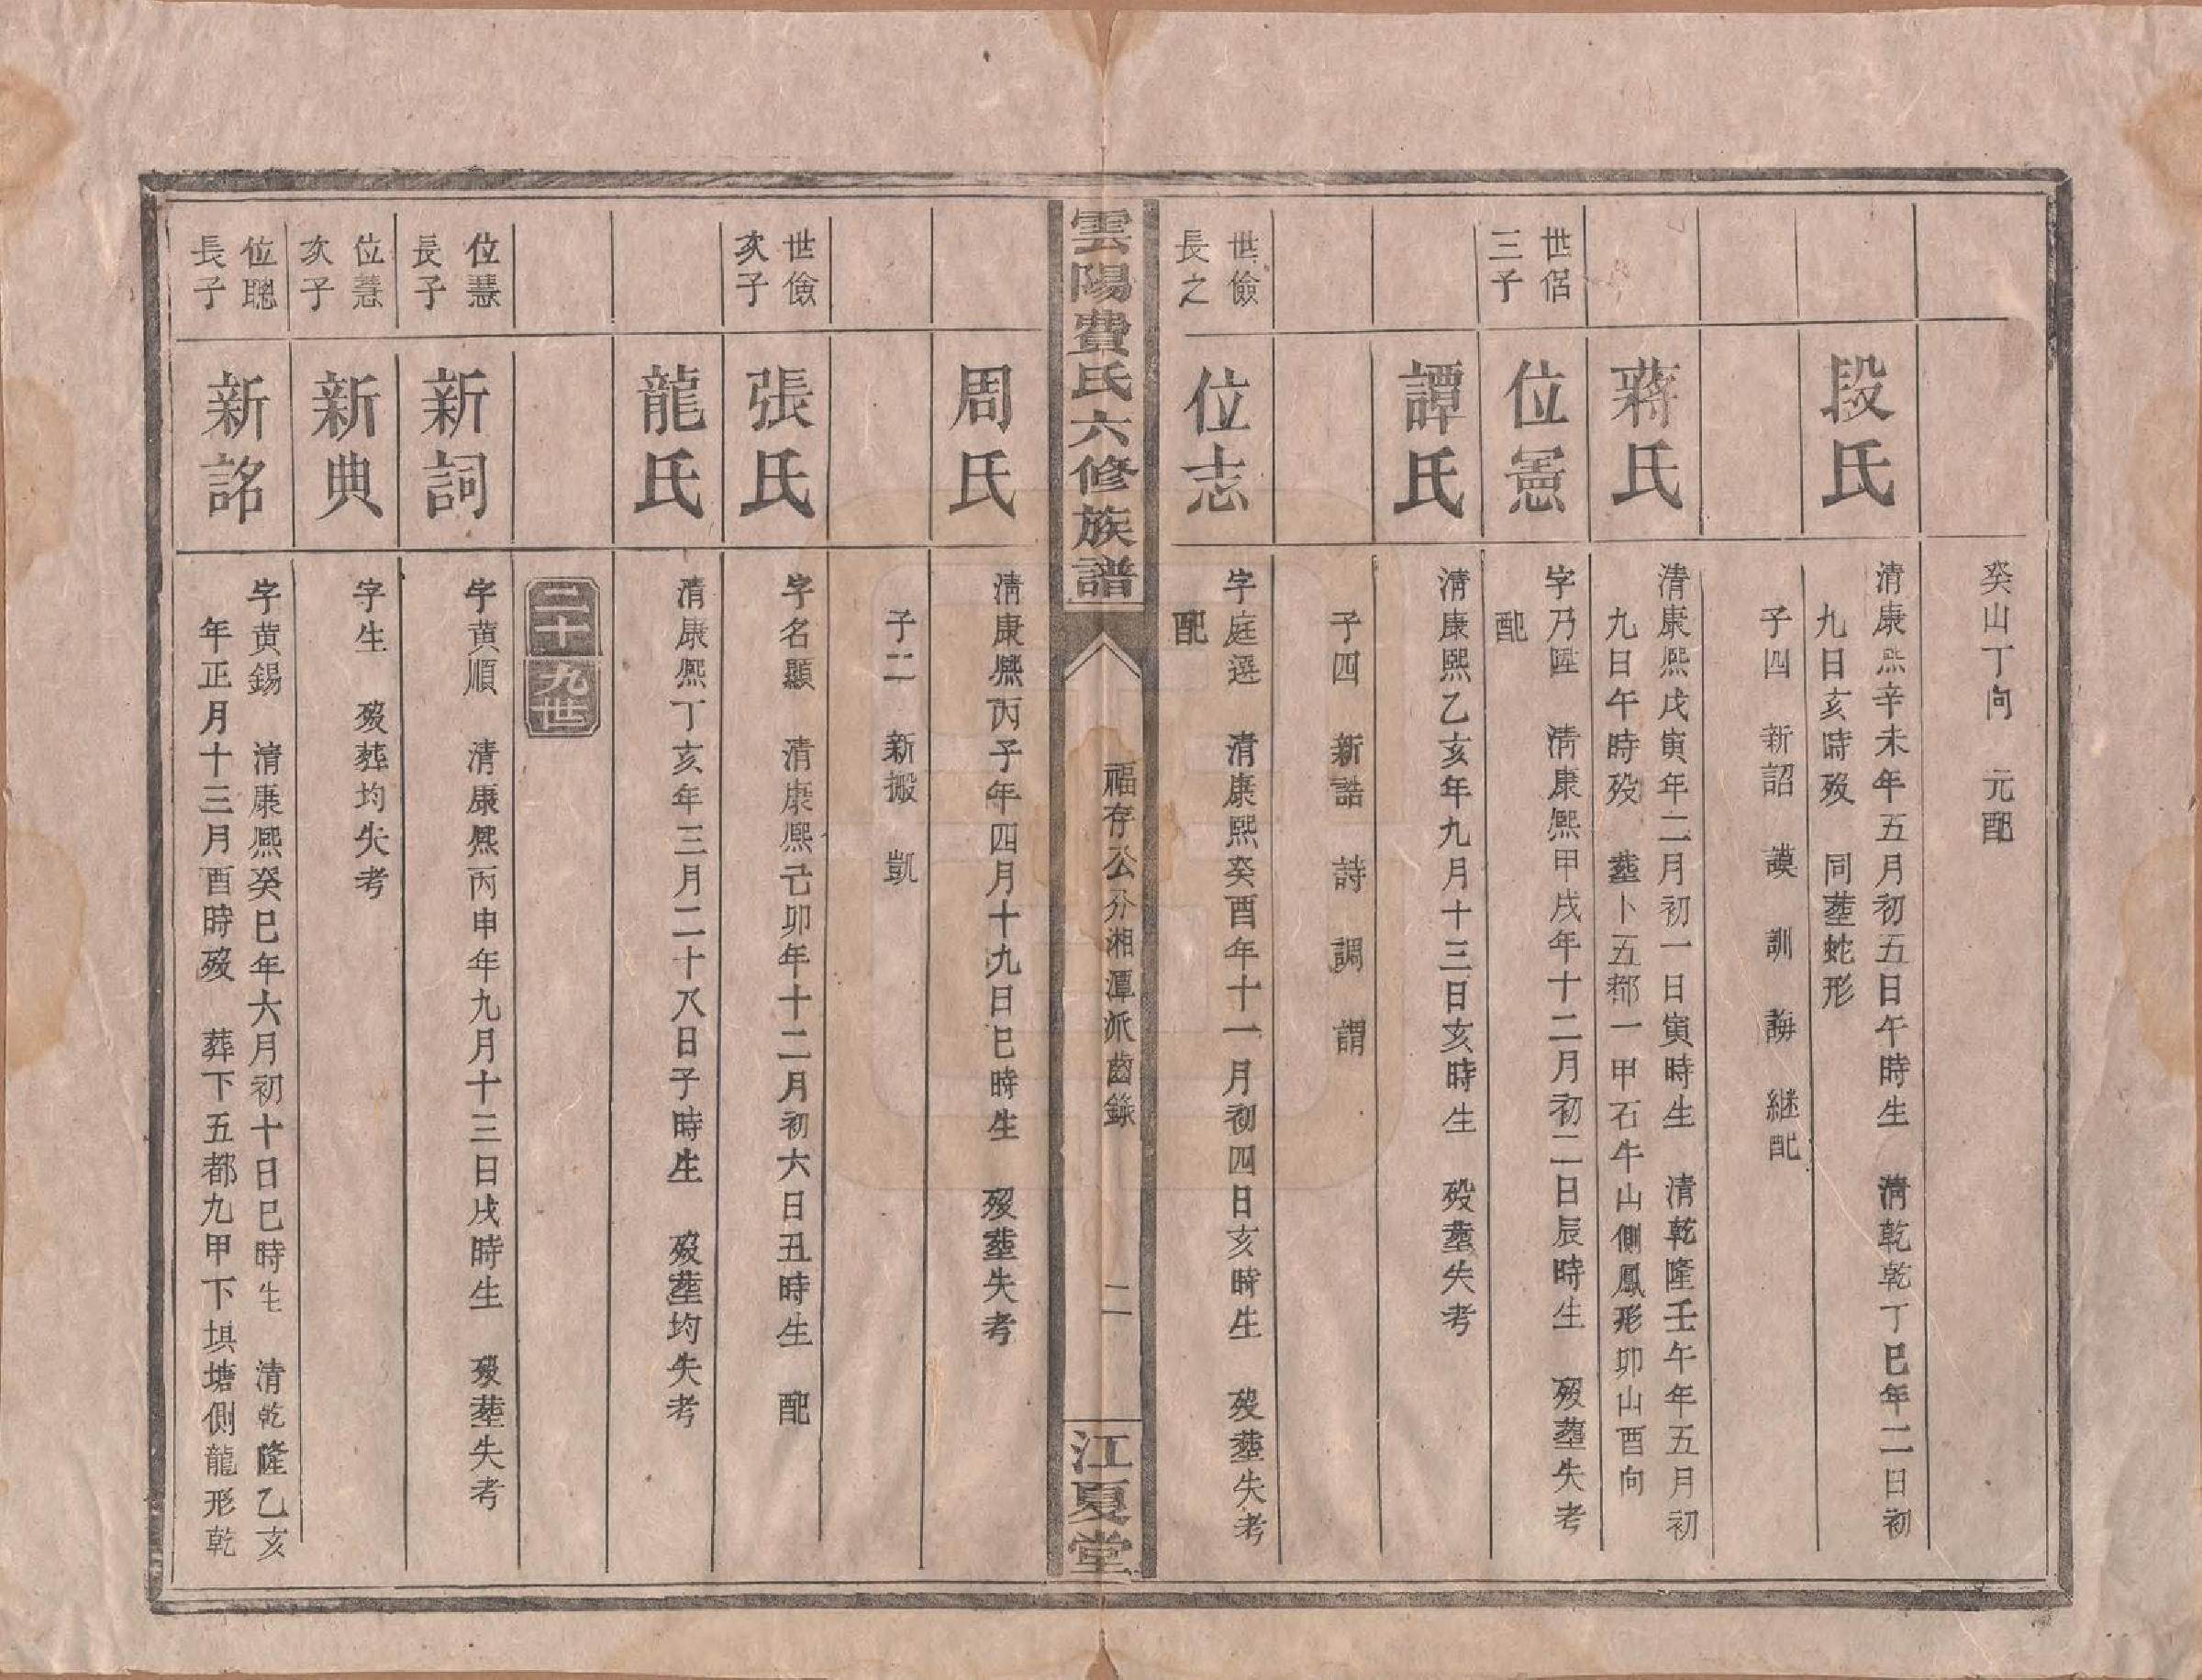 癸山丁向　元配
段氏
清康熙辛未年五月初五日午時生　清乾乾丁巳年二日初
九日亥時歿　同塟蛇形
子四　新詔　謨　訓　誨　継配
蔣氏
清康熙戊寅年二月初一日寅時生　清乾隆壬午年五月初
九日午時殁　塟卜五都一甲石牛山側鳳形卯山酉向
世侶
三子
位憲
字乃陞　清康熙甲戌年十二月初二日辰時生　歿塟失考
配
譚氏
清康熙乙亥年九月十三日亥時生　歿塟失考
子四　新誥　詩　調　謂
世儉
長之
位志
字庭選　清康熙癸酉年十一月初四日亥時生　歿塟失考
配
雲陽費氏六修族譜
福存公分湘潭派齒錄
二
江夏堂
周氏
清康熙丙子年四月十九日巳時生　歿塟失考
子二　新搬　凱
世儉
次子
張氏
字名顯　清康熙己卯年十二月初六日丑時生　配
龍氏
清康熙丁亥年三月二十八日子時生　歿塟均失考
二十九世
位慧
長子
新詞
字黄順　清康熙丙申年九月十三日戌時生　歿塟失考
位慧
次子
新典
字生　歿葬均失考
位聰
長子
新詺
字黄錫　清康熙癸巳年六月初十日巳時生　清乾隆乙亥
年正月十三月酉時歿　葬下五都九甲下垻塘側龍形乾